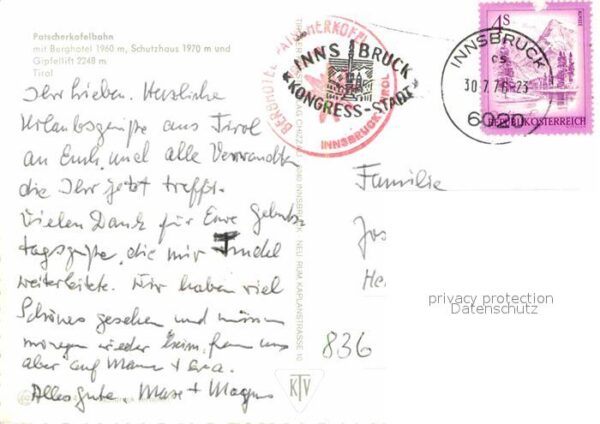 Patscherkofelbahn
mit Berghotel 1960 m, Schutzhaus 1970 m und
Gipfellift 2248 m
Tirol
Ihr Lieben. Herzliche
Urlaubsgrüße aus Tirol
an Euch und alle Verwandten
die Ihr jetzt trefft.
Vielen Dank für Eure Geburts-
tagsgrüße, die mir Trudel
weiterleitete. Wir haben viel
Schönes gesehen und müssen
morgen wieder heim, freuen uns
aber auf Mann +
Alles Gute, Max + Magus
BERGHOTEL PATSCHERKOFEL
INNSBRUCK TIROL
INNSBRUCK
KONGRESS-STADT
4S
INNSBRUCK
6020
REPUBLIK ÖSTERREICH
Familie
Jos
He
836
KTV
NEU RUM, KAPLANSTRASSE 10
privacy protection
Datenschutz